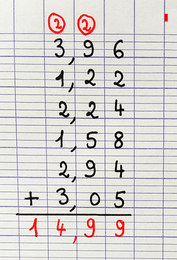 2 2
3,96
1,22
2,24
1,58
2,94
+ 3,05
14,99